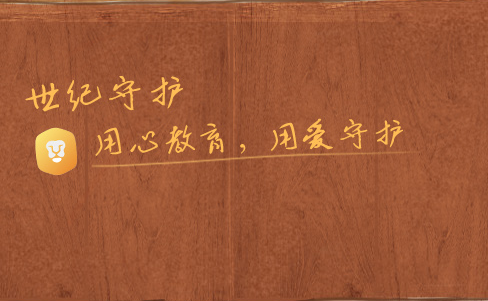 世纪守护
用心教育，用爱守护